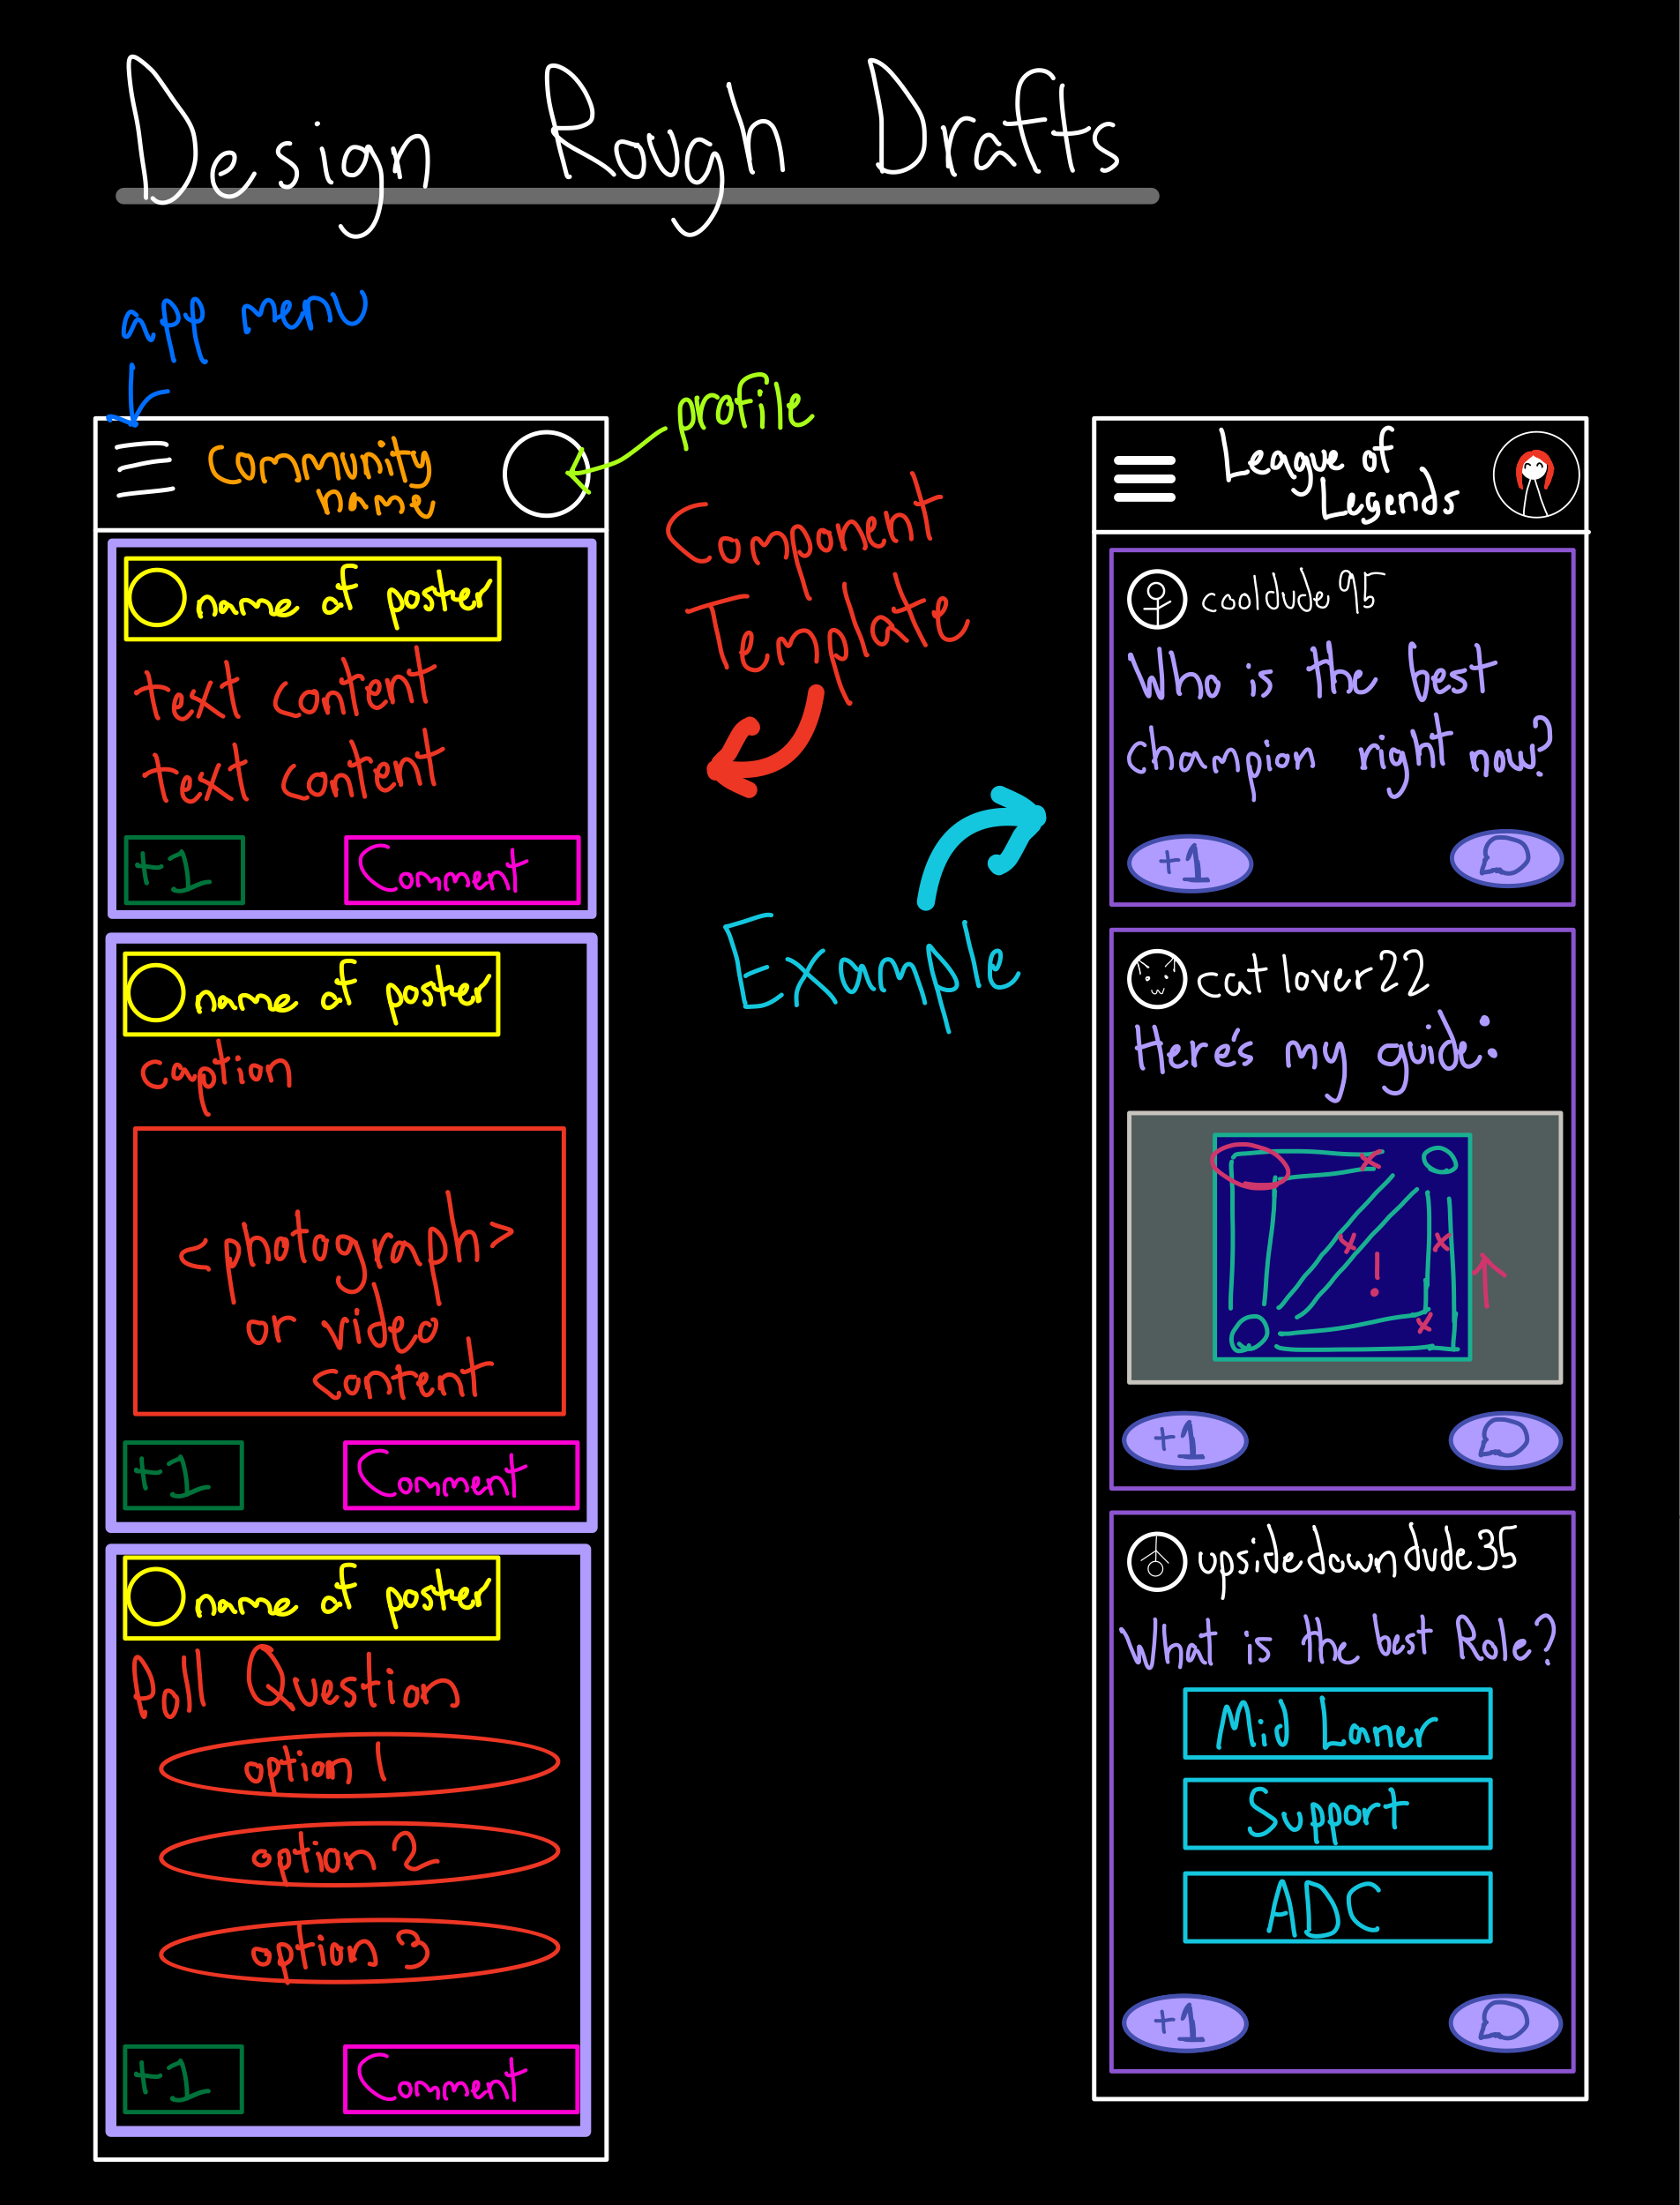 Design Rough Drafts
app menu
profile
Community
name
name of poster
text content
text content
+1
Comment
name of poster
caption
<photograph>
or video
content
+1
Comment
name of poster
Poll Question
option 1
option 2
option 3
+1
Comment
Component
Template
Example
League of
Legends
cooldude95
Who is the best
champion right now?
+1
catlover22
Here's my guide:
x
x
x
!
x
+1
upsidedowndude35
What is the best Role?
Mid Laner
Support
ADC
+1